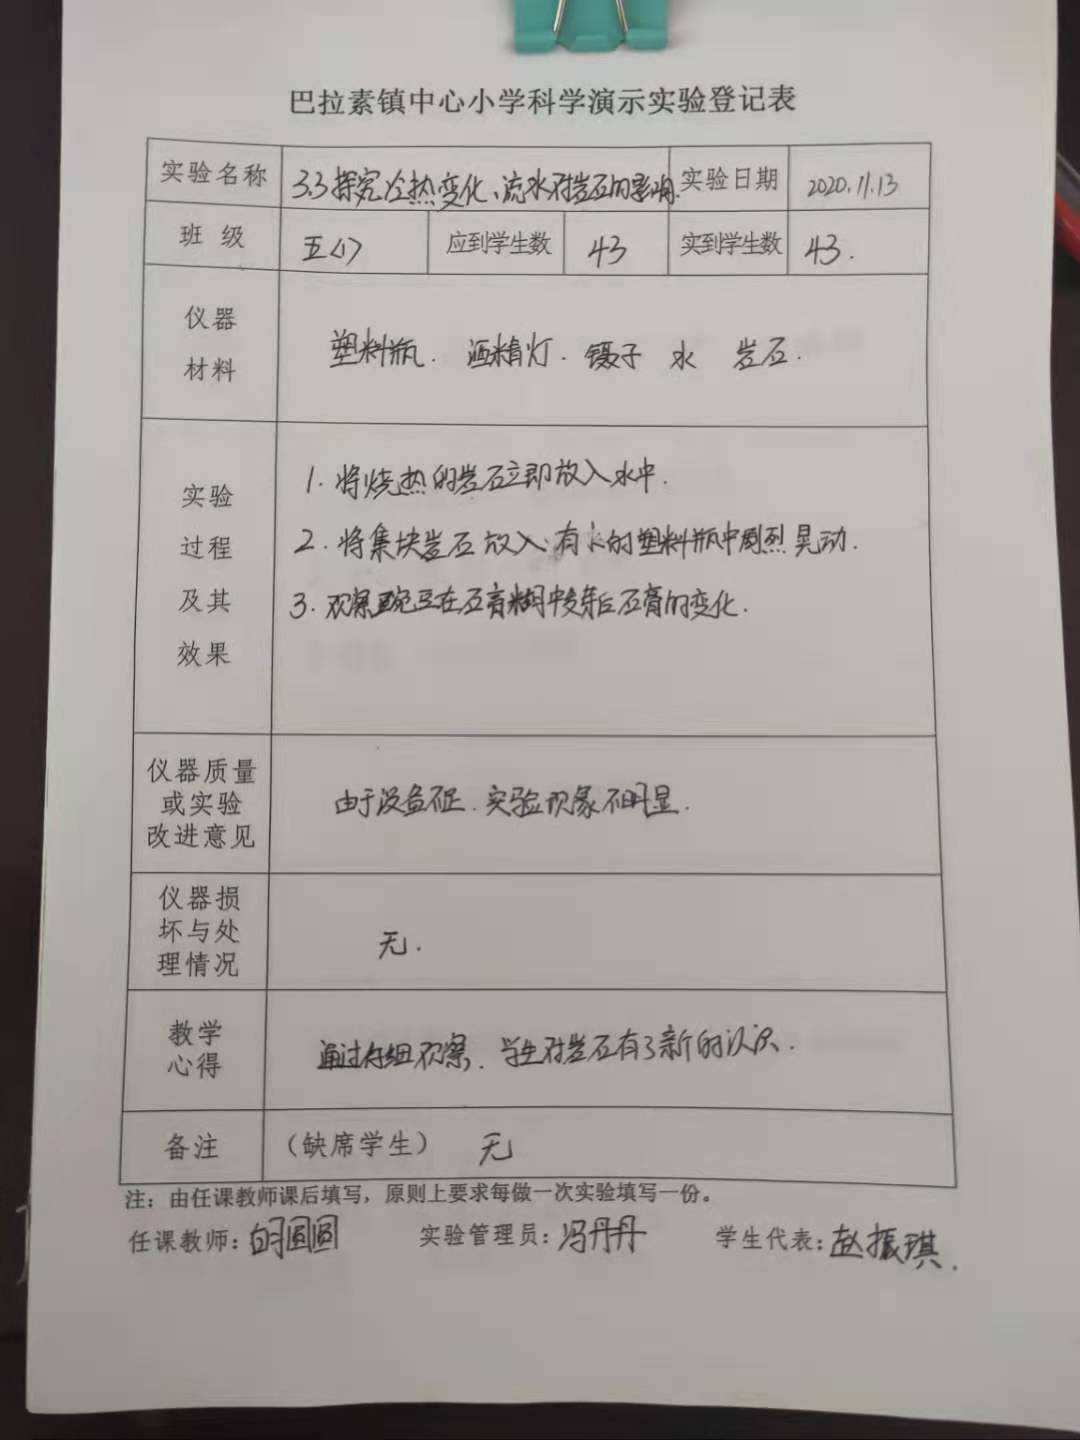 巴拉素镇中心小学科学演示实验登记表
实验名称 3.3探究冷热变化、流水对岩石的影响. 实验日期 2020.11.13
班 级 五<1> 应到学生数 43 实到学生数 43.
仪器
材料
塑料瓶. 酒精灯. 镊子 水 岩石.
实验
过程
及其
效果
1. 将烧热的岩石立即放入水中.
2. 将集块岩石放入有水的塑料瓶中剧烈晃动.
3. 观察豌豆在石膏糊中发芽后石膏的变化.
仪器质量
或实验
改进意见
由于设备不足. 实验现象不明显.
仪器损
坏与处
理情况
无.
教学
心得
通过仔细观察. 学生对岩石有了新的认识.
备注 （缺席学生） 无
注：由任课教师课后填写，原则上要求每做一次实验填写一份。
任课教师：圆圆 实验管理员：冯丹丹 学生代表：赵振琪.